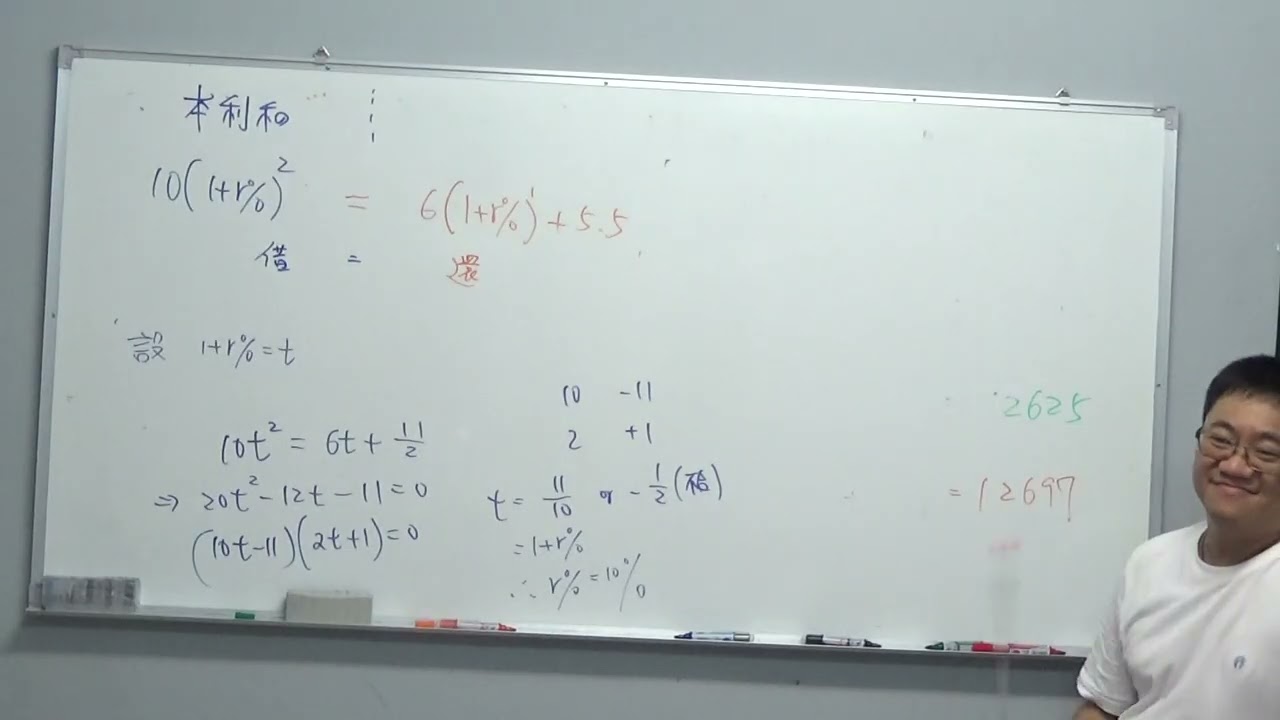 本利和
10(1+r%)² = 6(1+r%)¹ + 5.5
借 = 還
設 1+r%=t
10t² = 6t + 11/2
⇒ 20t² - 12t - 11 = 0
(10t-11)(2t+1)=0
10 -11
2 +1
t = 11/10 or -1/2 (不合)
= 1+r%
∴ r% = 10%
2625
= 12697